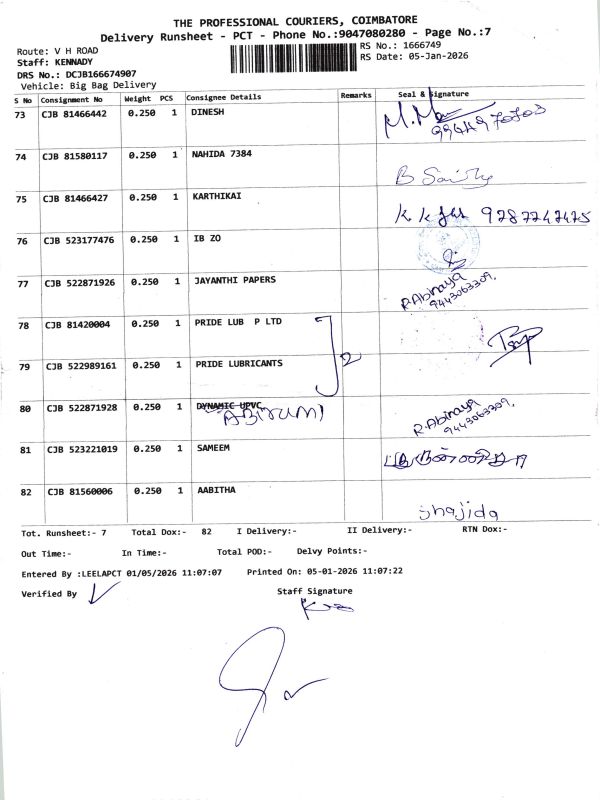 THE PROFESSIONAL COURIERS, COIMBATORE
Delivery Runsheet - PCT - Phone No.:9047080280 - Page No.:7
Route: V H ROAD
RS No.: 1666749
Staff: KENNADY
RS Date: 05-Jan-2026
DRS No.: DCJB166674907
Vehicle: Big Bag Delivery
S No Consignment No Weight PCS Consignee Details Remarks Seal & Signature
73 CJB 81466442 0.250 1 DINESH
74 CJB 81580117 0.250 1 NAHIDA 7384
75 CJB 81466427 0.250 1 KARTHIKAI
9787747475
76 CJB 523177476 0.250 1 IB ZO
77 CJB 522871926 0.250 1 JAYANTHI PAPERS R.Abinaya
9443063309.
78 CJB 81420004 0.250 1 PRIDE LUB P LTD
79 CJB 522989161 0.250 1 PRIDE LUBRICANTS
80 CJB 522871928 0.250 1 DYNAMIC UPVC R.Abinaya
ABIRUMI 9443063309.
81 CJB 523221019 0.250 1 SAMEEM
82 CJB 81560006 0.250 1 AABITHA
Shajida
Tot. Runsheet:- 7 Total Dox:- 82 I Delivery:- II Delivery:- RTN Dox:-
Out Time:- In Time:- Total POD:- Delvy Points:-
Entered By :LEELAPCT 01/05/2026 11:07:07 Printed On: 05-01-2026 11:07:22
Verified By Staff Signature